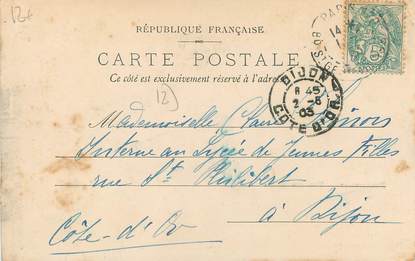 RÉPUBLIQUE FRANÇAISE
CARTE POSTALE
Ce côté est exclusivement réservé à l'adresse
DIJON
8 45
2 -6
03
COTE D'OR
12
Mademoiselle Claire
Interne au Lycée de Jeunes Filles
rue St Philibert
à Dijon
Côte-d'Or